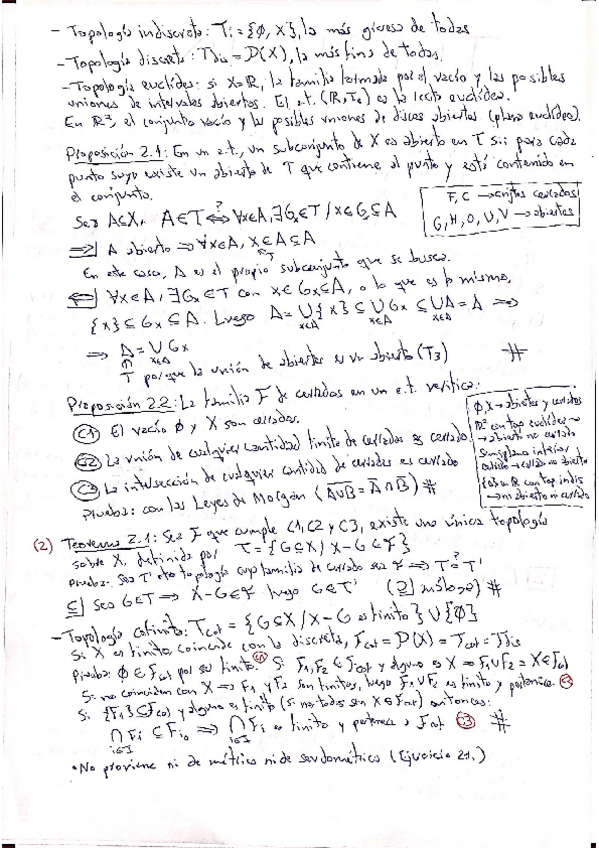 - Topología indiscreta: Ti = {∅, X}, la más gruesa de todas
- Topología discreta: Tdis = P(X), la más fina de todas.
- Topología euclídea: si X=ℝ, la familia formada por el vacío y las posibles
uniones de intervalos abiertos. El e.t. (ℝ, Te) es la recta euclídea.
En ℝ² el conjunto vacío y las posibles uniones de discos abiertos (plano euclídeo).
Proposición 2.1: En un e.t., un subconjunto de X es abierto en T sii para cada
punto suyo existe un abierto de T que contiene al punto y está contenido en
el conjunto.
F, C → cerrados
G, H, O, U, V → abiertos
Sea A⊆X, A∈T ⇔? ∀x∈A, ∃Gx∈T / x∈Gx⊆A
⇒ A abierto ⇒ ∀x∈A, x∈A⊆A
∈T
En este caso, A es el propio subconjunto que se busca.
⇐ ∀x∈A, ∃Gx∈T con x∈Gx⊆A, o lo que es lo mismo,
{x}⊆Gx⊆A. Luego A = ∪{x} ⊆ ∪Gx ⊆ ∪A = A ⇒
x∈A x∈A x∈A
⇒ A = ∪Gx
x∈A
T porque la unión de abiertos es un abierto (T3) #
Proposición 2.2: La familia F de cerrados en un e.t. verifica:
C1 El vacío ∅ y X son cerrados.
C2 La unión de cualquier cantidad finita de cerrados es cerrado
C3 La intersección de cualquier cantidad de cerrados es cerrado
Prueba: con las Leyes de Morgan (A∪B = A ∩ B) #
∅, X → abiertos y cerrados
ℝ² con top euclídea →
→ abierto no cerrado
Semiplano inferior
cerrado → cerrado no abierto
ℝ con top indis
→ ni abierto ni cerrado
(2) Teorema 2.1: Sea F que cumple C1, C2 y C3, existe una única topología
sobre X, definida por T = {G⊆X / X-G∈F}
Prueba: Sea T' otra topología cuya familia de cerrados sea F ⇒? T = T'
⊆ Sea G∈T ⇒ X-G∈F luego G∈T' (⊇ análogo) #
- Topología cofinita: Tcof = {G⊆X / X-G es finito} ∪ {∅}
Si X es finito, coincide con la discreta, Fcof = P(X) = Tcof = Tdis
Prueba: ∅∈Fcof por ser finito. Si F1, F2 ∈ Fcof y alguno es X ⇒ F1∪F2 = X∈Fcof
Si no coinciden con X ⇒ F1 y F2 son finitos, luego F1∪F2 es finito y pertenece.
Si {Fi}⊆Fcof y alguno es finito (si no todos son X∈Fcof) entonces:
∩Fi ⊆ Fi₀ ⇒ ∩Fi es finito y pertenece a Fcof C3 #
i∈I i∈I
• No proviene ni de métrica ni de seudométrica (Ejercicio 21.)